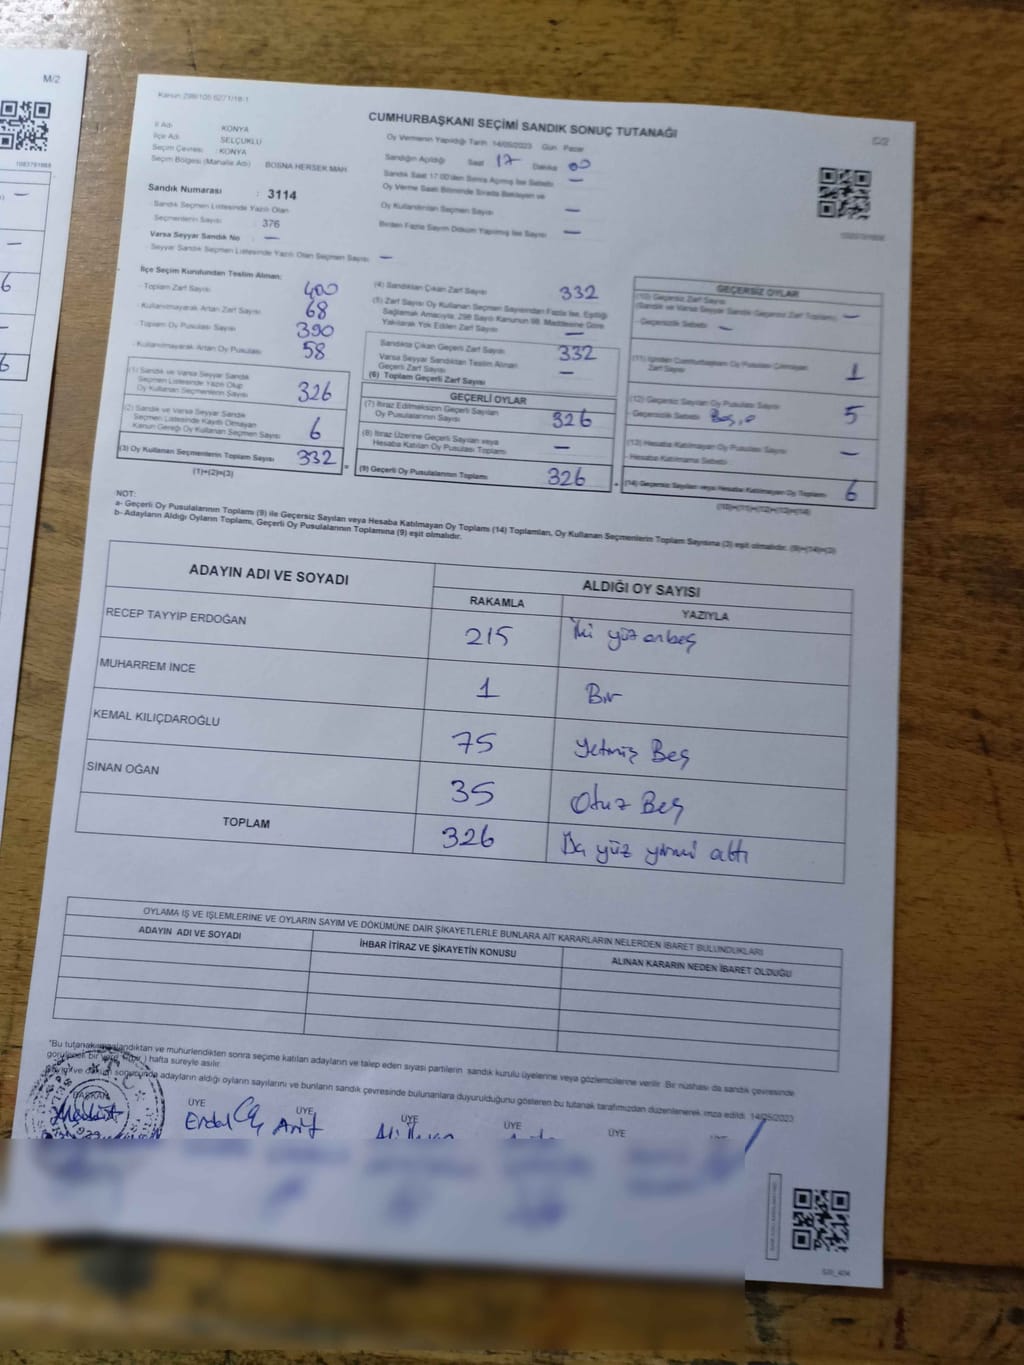 M/2
Kanun:298/105 6271/18-1
CUMHURBAŞKANI SEÇİMİ SANDIK SONUÇ TUTANAĞI
C/2
İl Adı : KONYA
İlçe Adı : SELÇUKLU
Seçim Çevresi : KONYA
Seçim Bölgesi (Mahalle Adı) BOSNA HERSEK MAH
Sandık Numarası : 3114
Sandık Seçmen Listesinde Yazılı Olan
Seçmenlerin Sayısı : 376
Varsa Seyyar Sandık No : —
Seyyar Sandık Seçmen Listesinde Yazılı Olan Seçmen Sayısı : —
Oy Vermenin Yapıldığı Tarih 14/05/2023 Gün Pazar
Sandığın Açıldığı Saat 17 Dakika 00
Sandık Saat 17:00'den Sonra Açılmış İse Sebebi —
Oy Verme Saati Bitiminde Sırada Bekleyen ve
Oy Kullandırılan Seçmen Sayısı —
Birden Fazla Sayım Döküm Yapılmış İse Sayısı —
İlçe Seçim Kurulundan Teslim Alınan:
- Toplam Zarf Sayısı 400
- Kullanılmayarak Artan Zarf Sayısı 68
- Toplam Oy Pusulası Sayısı 390
- Kullanılmayarak Artan Oy Pusulası 58
(1) Sandık ve Varsa Seyyar Sandık
Seçmen Listesinde Yazılı Olup
Oy Kullanan Seçmenlerin Sayısı 326
(2) Sandık ve Varsa Seyyar Sandık
Seçmen Listesinde Kayıtlı Olmayan
Kanun Gereği Oy Kullanan Seçmen Sayısı 6
(3) Oy Kullanan Seçmenlerin Toplam Sayısı 332
(1)+(2)=(3)
(4) Sandıktan Çıkan Zarf Sayısı 332
(5) Zarf Sayısı Oy Kullanan Seçmen Sayısından Fazla İse, Eşitliği
Sağlamak Amacıyla, 298 Sayılı Kanunun 98. Maddesine Göre
Yakılarak Yok Edilen Zarf Sayısı —
Sandıkta Çıkan Geçerli Zarf Sayısı 332
Varsa Seyyar Sandıktan Teslim Alınan
Geçerli Zarf Sayısı —
(6) Toplam Geçerli Zarf Sayısı
GEÇERLİ OYLAR
(7) İtiraz Edilmeksizin Geçerli Sayılan
Oy Pusulalarının Sayısı 326
(8) İtiraz Üzerine Geçerli Sayılan veya
Hesaba Katılan Oy Pusulası Toplamı —
(9) Geçerli Oy Pusulalarının Toplamı 326
GEÇERSİZ OYLAR
(10) Geçersiz Zarf Sayısı
(Sandık ve Varsa Seyyar Sandık Geçersiz Zarf Toplamı) —
- Geçersizlik Sebebi —
(11) İçinden Cumhurbaşkanı Oy Pusulası Çıkmayan
Zarf Sayısı 1
(12) Geçersiz Sayılan Oy Pusulası Sayısı 5
- Geçersizlik Sebebi
(13) Hesaba Katılmayan Oy Pusulası Sayısı —
- Hesaba Katılmama Sebebi
(14) Geçersiz Sayılan veya Hesaba Katılmayan Oy Toplamı 6
(10)+(11)+(12)+(13)=(14)
NOT:
a- Geçerli Oy Pusulalarının Toplamı (9) ile Geçersiz Sayılan veya Hesaba Katılmayan Oy Toplamı (14) Toplamları, Oy Kullanan Seçmenlerin Toplam Sayısına (3) eşit olmalıdır. (9)+(14)=(3)
b- Adayların Aldığı Oyların Toplamı, Geçerli Oy Pusulalarının Toplamına (9) eşit olmalıdır.
ADAYIN ADI VE SOYADI ALDIĞI OY SAYISI
RAKAMLA YAZIYLA
RECEP TAYYİP ERDOĞAN 215 İki yüz onbeş
MUHARREM İNCE 1 Bir
KEMAL KILIÇDAROĞLU 75 Yetmiş Beş
SİNAN OĞAN 35 Otuz Beş
TOPLAM 326 yüz yirmi altı
OYLAMA İŞ VE İŞLEMLERİNE VE OYLARIN SAYIM VE DÖKÜMÜNE DAİR ŞİKAYETLERLE BUNLARA AİT KARARLARIN NELERDEN İBARET BULUNDUKLARI
ADAYIN ADI VE SOYADI İHBAR İTİRAZ VE ŞİKAYETİN KONUSU ALINAN KARARIN NEDEN İBARET OLDUĞU
"Bu tutanak imzalandıktan ve mühürlendikten sonra seçime katılan adayların ve talep eden siyasi partilerin sandık kurulu üyelerine veya gözlemcilerine verilir. Bir nüshası da sandık çevresinde
görülecek bir yere (bir) hafta süreyle asılır.
sonucunda adayların aldığı oyların sayılarını ve bunların sandık çevresinde bulunanlara duyurulduğunu gösteren bu tutanak tarafımızdan düzenlenerek imza edildi. 14/05/2023
BAŞKAN ÜYE ÜYE ÜYE ÜYE ÜYE
Erdal Arif